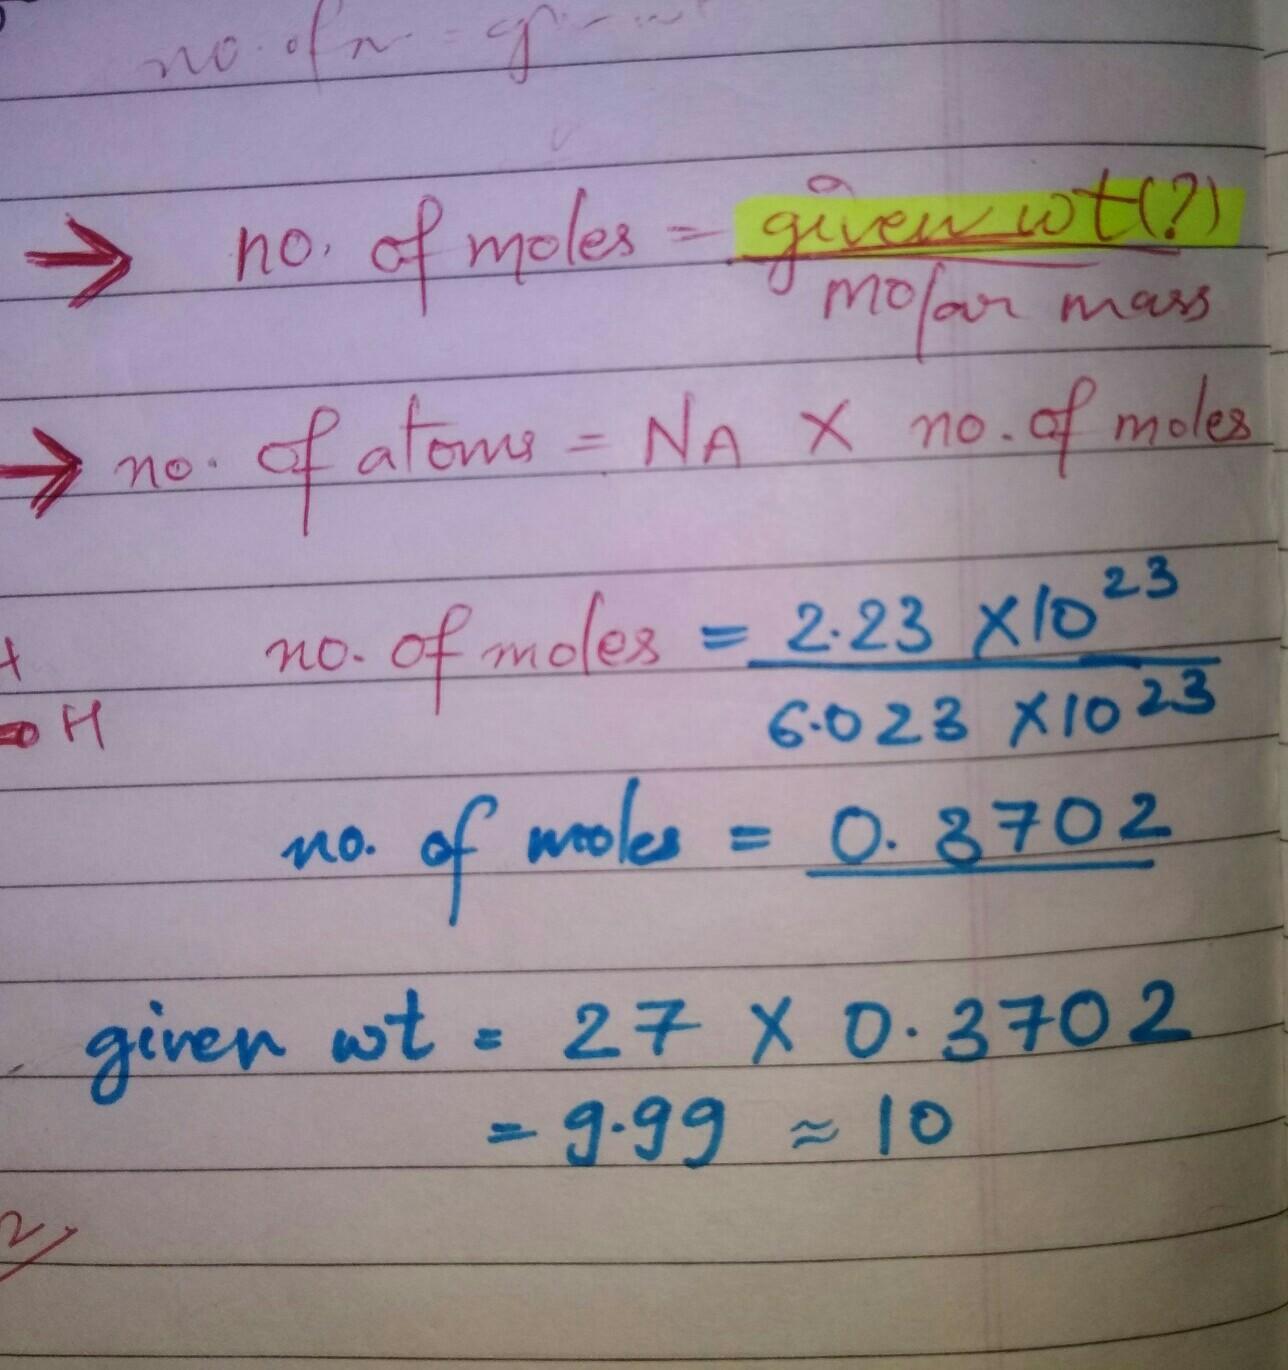 no. of
→ no. of moles = given wt(?)
molar mass
→ no. of atoms = NA X no. of moles
no. of moles = 2.23 X10²³
6.023 X10²³
H
no. of moles = 0.3702
given wt = 27 X 0.3702
= 9.99 ≈ 10
2